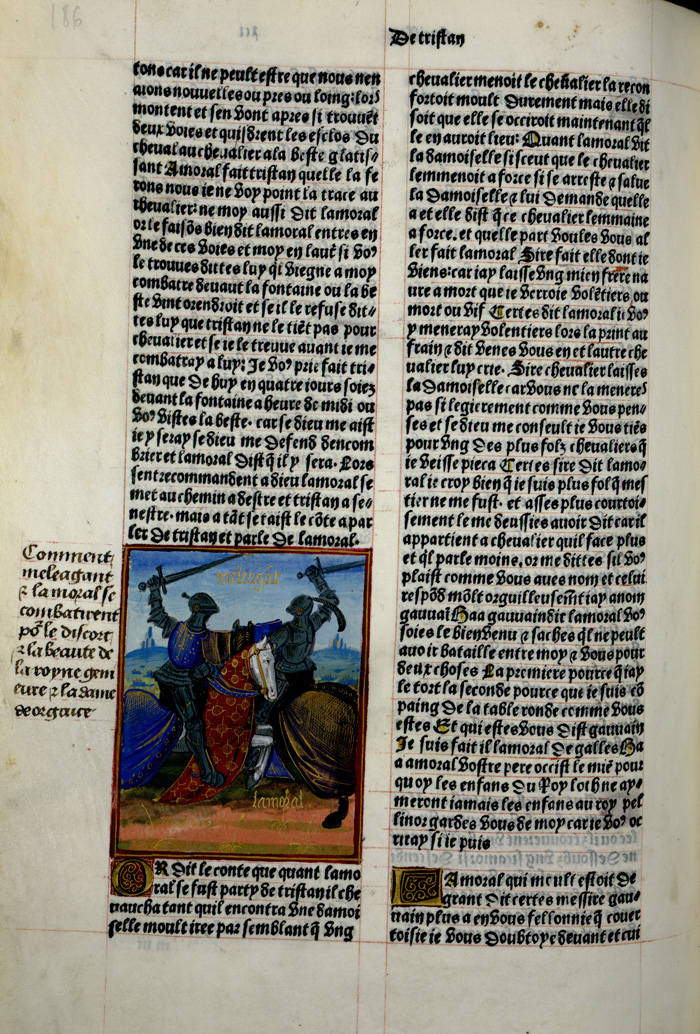 186
De tristan
tons car il ne peult estre que nous nen
aions nouuelles ou pres ou loing: lors
montent et sen vont apres si trouuẽt
deux voies et quisdrent les esclos du
cheual au cheualier a la beste glatis-
sant Amoral fait tristan quelle la fe
rons nous ie ne voy point la trace au
cheualier: ne moy aussi dit lamoral
or le faisõs bien dit lamoral entres en
vne de ces voies et moy en lautre si voꝰ
le trouues dittes luy qͥl viegne a moy
combatre deuant la fontaine ou la be
ste vint orendroit et se il le refuse dit-
tes luy que tristan ne le tiẽt pas pour
cheualier et se ie le treuue auant ie me
combatray a luy: Je voꝰ prie fait tri-
stan que de huy en quatre iours soiez
deuant la fontaine a heure de midi ou
voꝰ vistes la beste. car se dieu me aist
ie y seray se dieu me defend dencom
brier et lamoral dist q̃ il y sera. Lors
sentrecommandent a dieu lamoral se
met au chemin a destre et tristan a se-
nestre. mais a tãt se taist le cõte a par
ler de tristan et parle de lamoral.
Comment
meleagant
⁊ la moral se
combatirent
põ le discort
⁊ la beaute de
la royne gem
eure ⁊ la dame
de orgaice
meleaght
lamoral
OR dit le conte que quant lamo
ral se fust party de tristan il che
uaucha tant quil encontra vne damoi
selle moult iree par semblant q̃ vng
cheualier menoit le cheualier la recon
fortoit moult durement mais elle di
soit que elle se occiroit maintenant q̃l
le en auroit lieu: Quant lamoral vit
la damoiselle si sceut que le cheualier
lemmenoit a force si se arreste ⁊ salue
la damoiselle ⁊ lui demande quelle
a et elle dist q̃ ce cheualier lemmaine
a force. et quelle part voules vous al
ler fait lamoral Sire fait elle dont ie
viens: car iay laisse vng mien frere na
ure a mort que ie verroie volẽtiers ou
mort ou vif Certes dit lamoral ie voꝰ
y meneray volentiers lors la print au
frain ⁊ dit venes vous en et lautre che
ualier luy crie. Sire cheualier laisses
la damoiselle car vous ne la meneres
pas si legierement comme vous pen-
ses et se dieu me conseult ie vous tiẽs
pour vng des plus folz cheualiers q̃
ie veisse pieca Certes sire dit lamo-
ral ie croy bien q̃ ie suis plus fol q̃ mes
tier ne me fust. et asses plus courtoi-
sement le me deussies auoir dit car il
appartient a cheualier quil face plus
et q̃l parle moins. or me dittes sil voꝰ
plaist comme vous aues nom et celui
respõd mõlt orguilleusem̃t iay a nom
gauuaĩ Haa gauuain dit lamoral voꝰ
soies le bien venu ⁊ saches q̃l ne peult
auoir bataille entre moy ⁊ vous pour
deux choses La premiere pource q̃ iay
le tort la seconde pource que ie suis cõ
paing de la table ronde comme vous
estes Et qui estes vous dist gauuain
Je suis fait il lamoral de galles Ha
a amoral vostre pere occist le miẽ pour
quoy les enfans du roy loth ne ay-
meront iamais les enfans au roy pel
linor gardes vous de moy car ie voꝰ oc
ciray si ie puis
Lamoral qui moult estoit de
grant dit certes messire gau-
uain plus a en vous fellonnie q̃ cour
toisie ie vous doubtoye deuant et cui